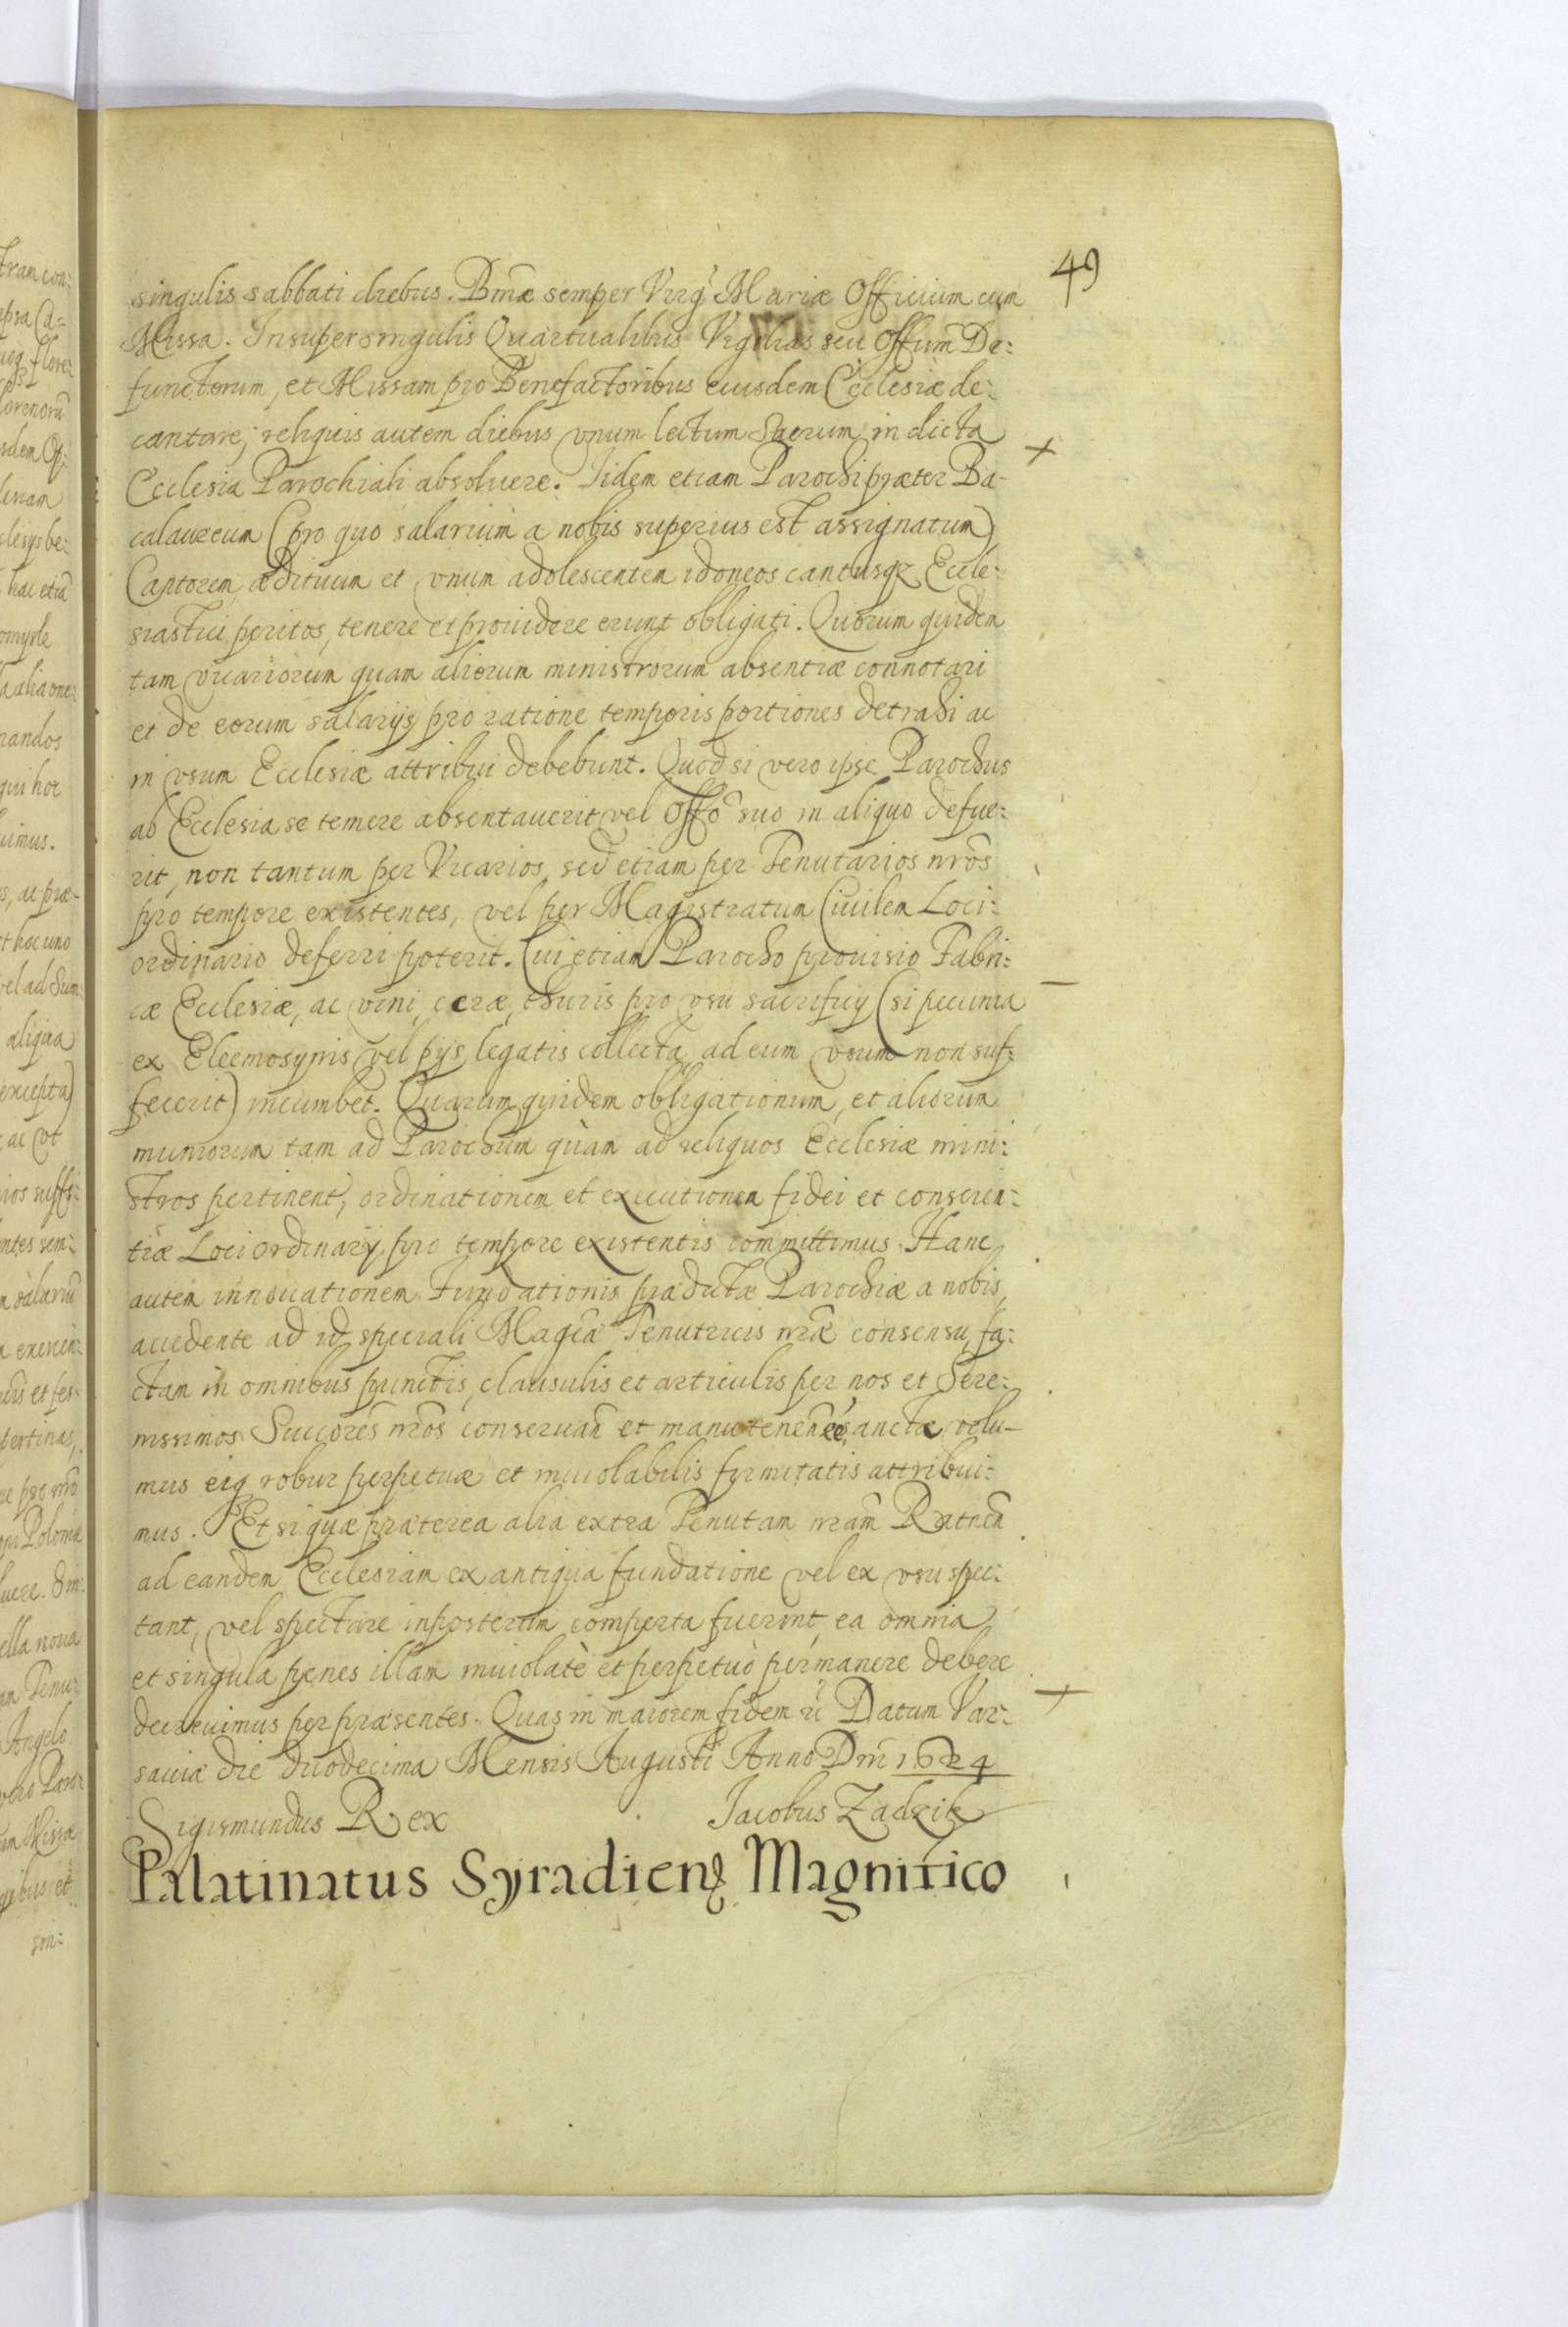 49
singulis sabbati diebus. Bmæ semper Virg Mariæ Officium cum
Missa. Insuper singulis Quartualibus Vigilias seu Offium De:
functorum, et Missam pro Benefactoribus eiusdem Ecclesiæ de:
cantare; reliquis autem diebus vnum lectum Sacrum in dicta
Ecclesia Parochiali absoluere. Iidem etiam Parochi præter Ba-
calaureum (pro quo salarium a nobis superius est assignatum)
Cantorem ædituum et vnum adolescentem idoneos cantusqȝ Eccle:
siastici peritos, tenere et prouidere erunt obligati. Quorum quidem
tam vicariorum quam aliorum ministrorum absentiæ connotari
et de eorum salarijs pro ratione temporis portiones detrahi ac
in vsum Ecclesiæ attribui debebunt. Quod si vero ipse Parochus
ab Ecclesia se temere absentauerit vel Offo suo in aliquo defue:
rit, non tantum per Vicarios, sed etiam per Tenutarios nros
pro tempore existentes, vel per Magistratum Ciuilem Loci:
ordinario deferri poterit. Cui etiam Parocho prouisio Fabri:
cæ Ecclesiæ, ac vini, ceræ, thuris pro vsu sacrificij (si pecunia
ex Eleemosynis vel pijs legatis collecta ad eum vsum non suf:
fecerit) incumbet. Quarum quidem obligationum, et aliorum
muniorum tam ad Parochum quàm ad reliquos Ecclesiæ mini:
stros pertinent, ordinationem et executionem fidei et conscien:
tiæ Loci ordinarij pro tempore existentis committimus. Hanc
autem innouationem Fundationis prædictæ Parochiæ a nobis,
accedente ad id speciali Magcæ Tenutricis nræ consensu, fa:
ctam in omnibus punctis, clausulis et articulis per nos et Sere:
nissimos Succores nros conseruan et manutenen sancta volu-
mus eiq robur perpetuæ et inuiolabilis firmitatis attribui:
mus. Et si quæ præterea alia extra Tenutam nram Ratnen
ad eandem Ecclesiam ex antiqua fundatione vel ex vsu spec:
tant, vel spectare inposterum comperta fuerint, ea omnia
et singula penes illam inuiolatè et perpetuò permanere debere
decreuimus per præsentes. Quas in maiorem fidem Datum Var:
sauiæ die duodecima Mensis Augusti Anno Dni 1624
Sigismundus Rex Iacobus Zadzik
Palatinatus Syradien Magnifico